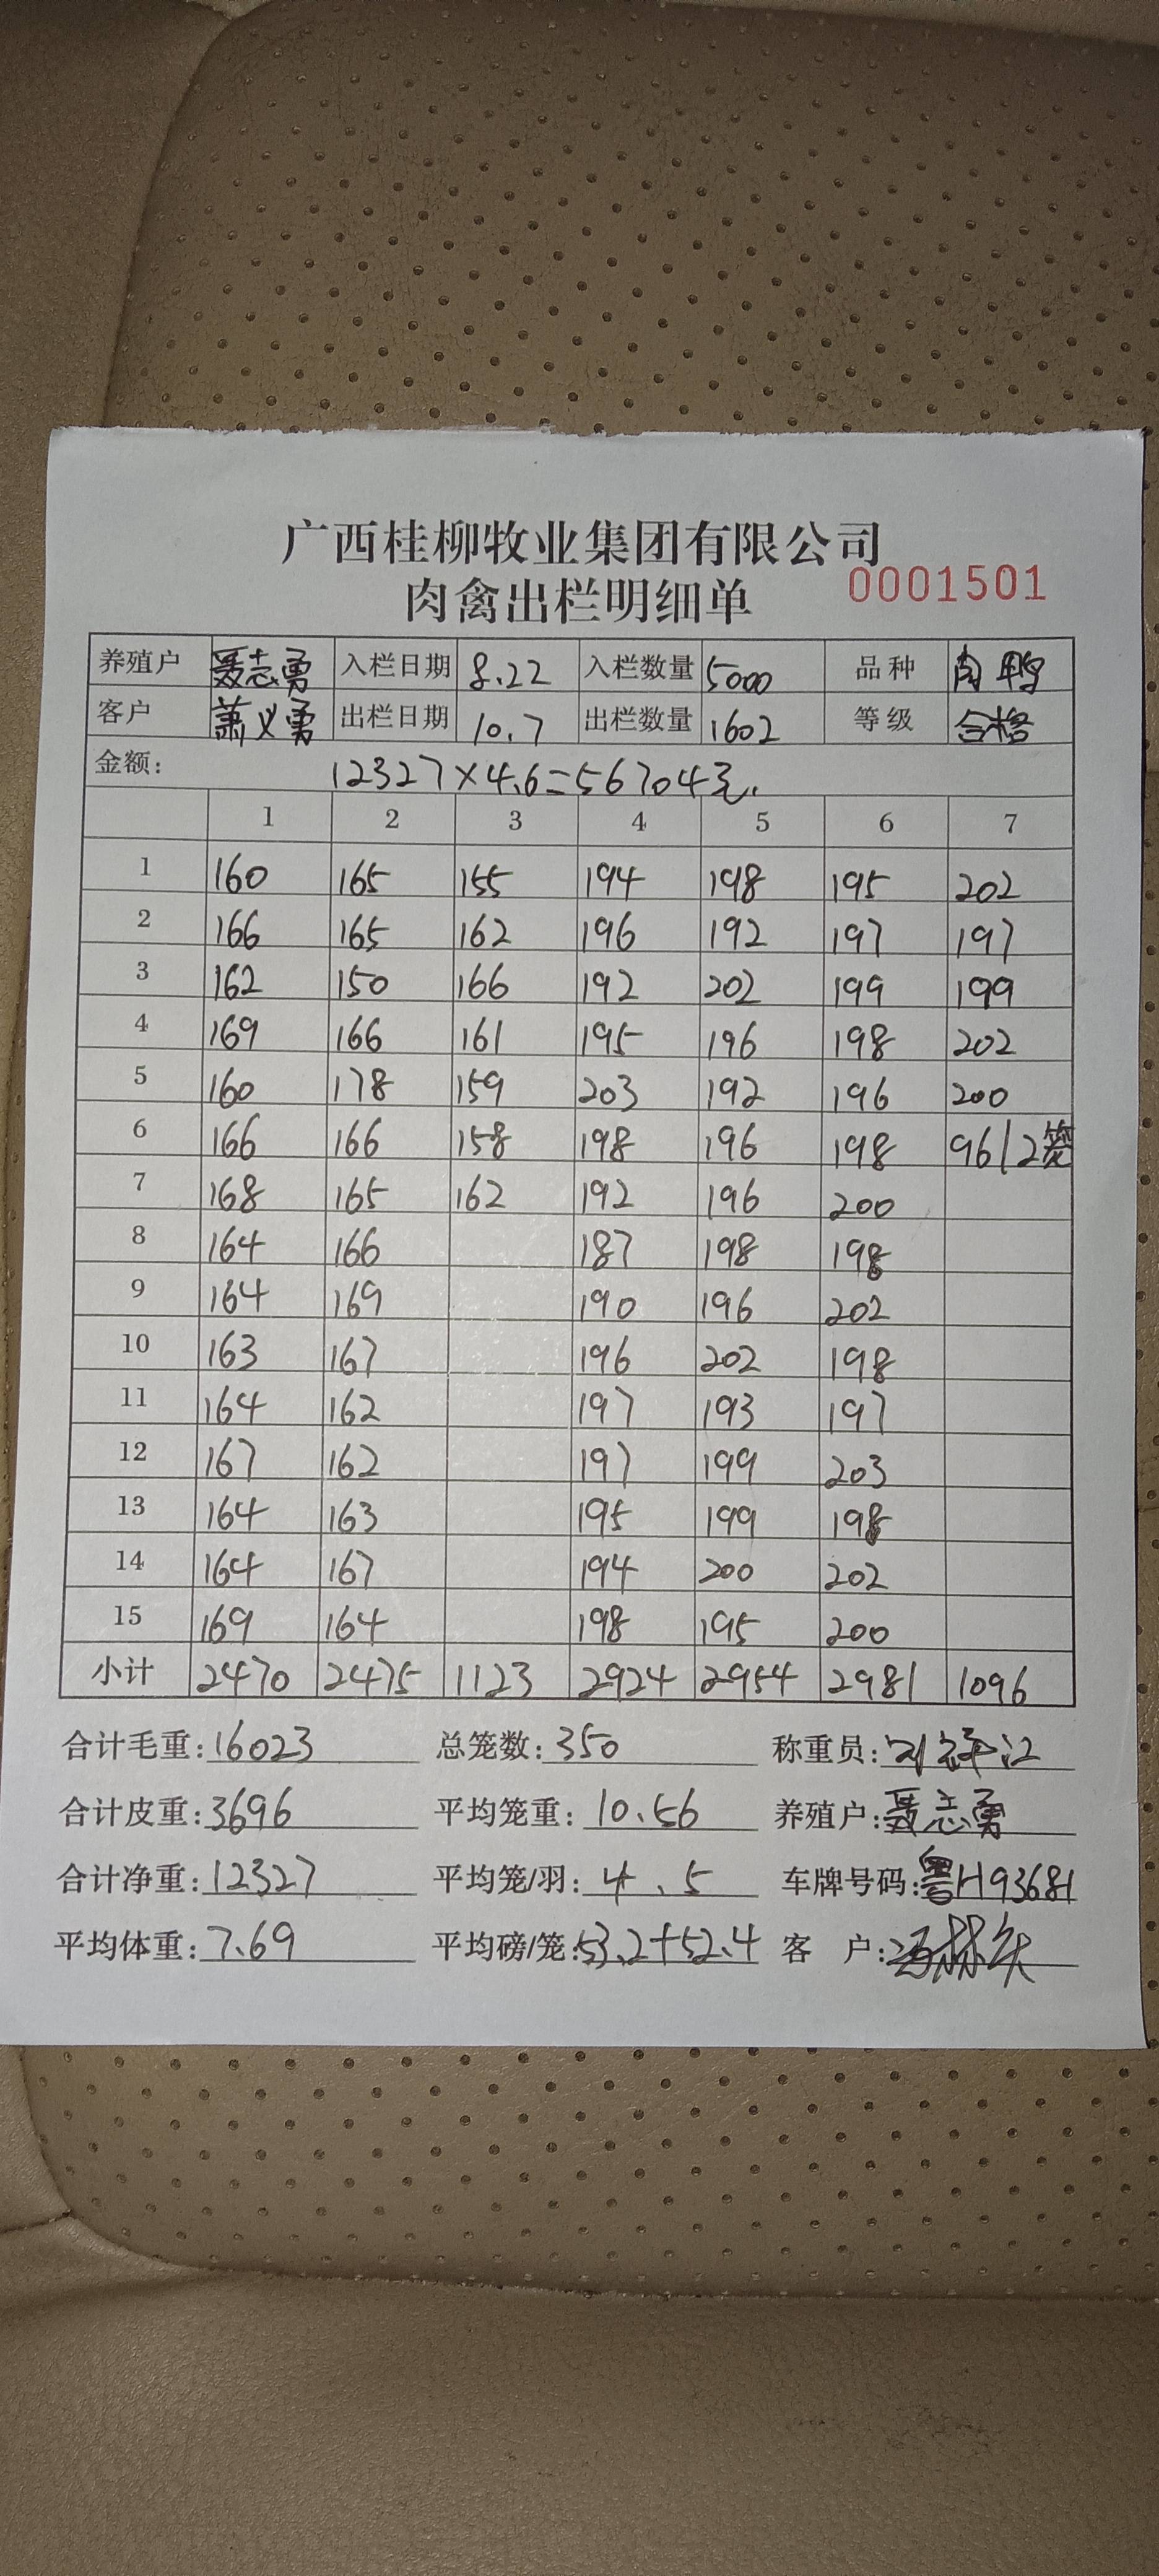 广西桂柳牧业集团有限公司
肉禽出栏明细单 0001501
养殖户 聂志勇 入栏日期 8.22 入栏数量 5000 品种 肉鸭
客户 萧义勇 出栏日期 10.7 出栏数量 1602 等级 合格
金额: 12327×4.6=56704元.
1 2 3 4 5 6 7
1 160 165 155 194 198 195 202
2 166 165 162 196 192 197 197
3 162 150 166 192 202 199 199
4 169 166 161 195 196 198 202
5 160 178 159 203 192 196 200
6 166 166 158 198 196 198 96/2笼
7 168 165 162 192 196 200
8 164 166 187 198 198
9 164 169 190 196 202
10 163 167 196 202 198
11 164 162 197 193 197
12 167 162 197 199 203
13 164 163 195 199 198
14 164 167 194 200 202
15 169 164 198 195 200
小计 2470 2475 1123 2924 2954 2981 1096
合计毛重:16023 总笼数:350 称重员:
合计皮重:3696 平均笼重:10.56 养殖户:聂志勇
合计净重:12327 平均笼/羽:4.5 车牌号码:粤H93681
平均体重:7.69 平均磅/笼:53.2+52.4 客 户: